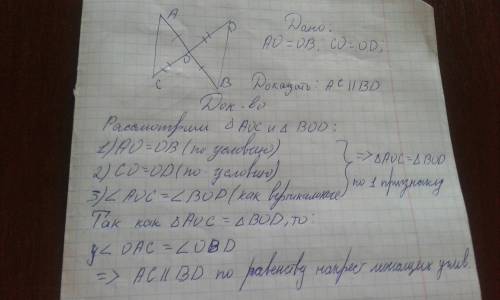 A
D
O
C
B
Дано:
AO=OB; CO=OD;
Доказать: AC∥BD
Док-во
Рассмотрим △AOC и △BOD:
1) AO=OB (по условию)
2) CO=OD (по условию)
3) ∠AOC=∠BOD (как вертикальные)
⇒ △AOC=△BOD
по 1 признаку
Так как △AOC=△BOD, то:
у ∠OAC=∠OBD
⇒ AC∥BD по равенству накрест лежащих углов.